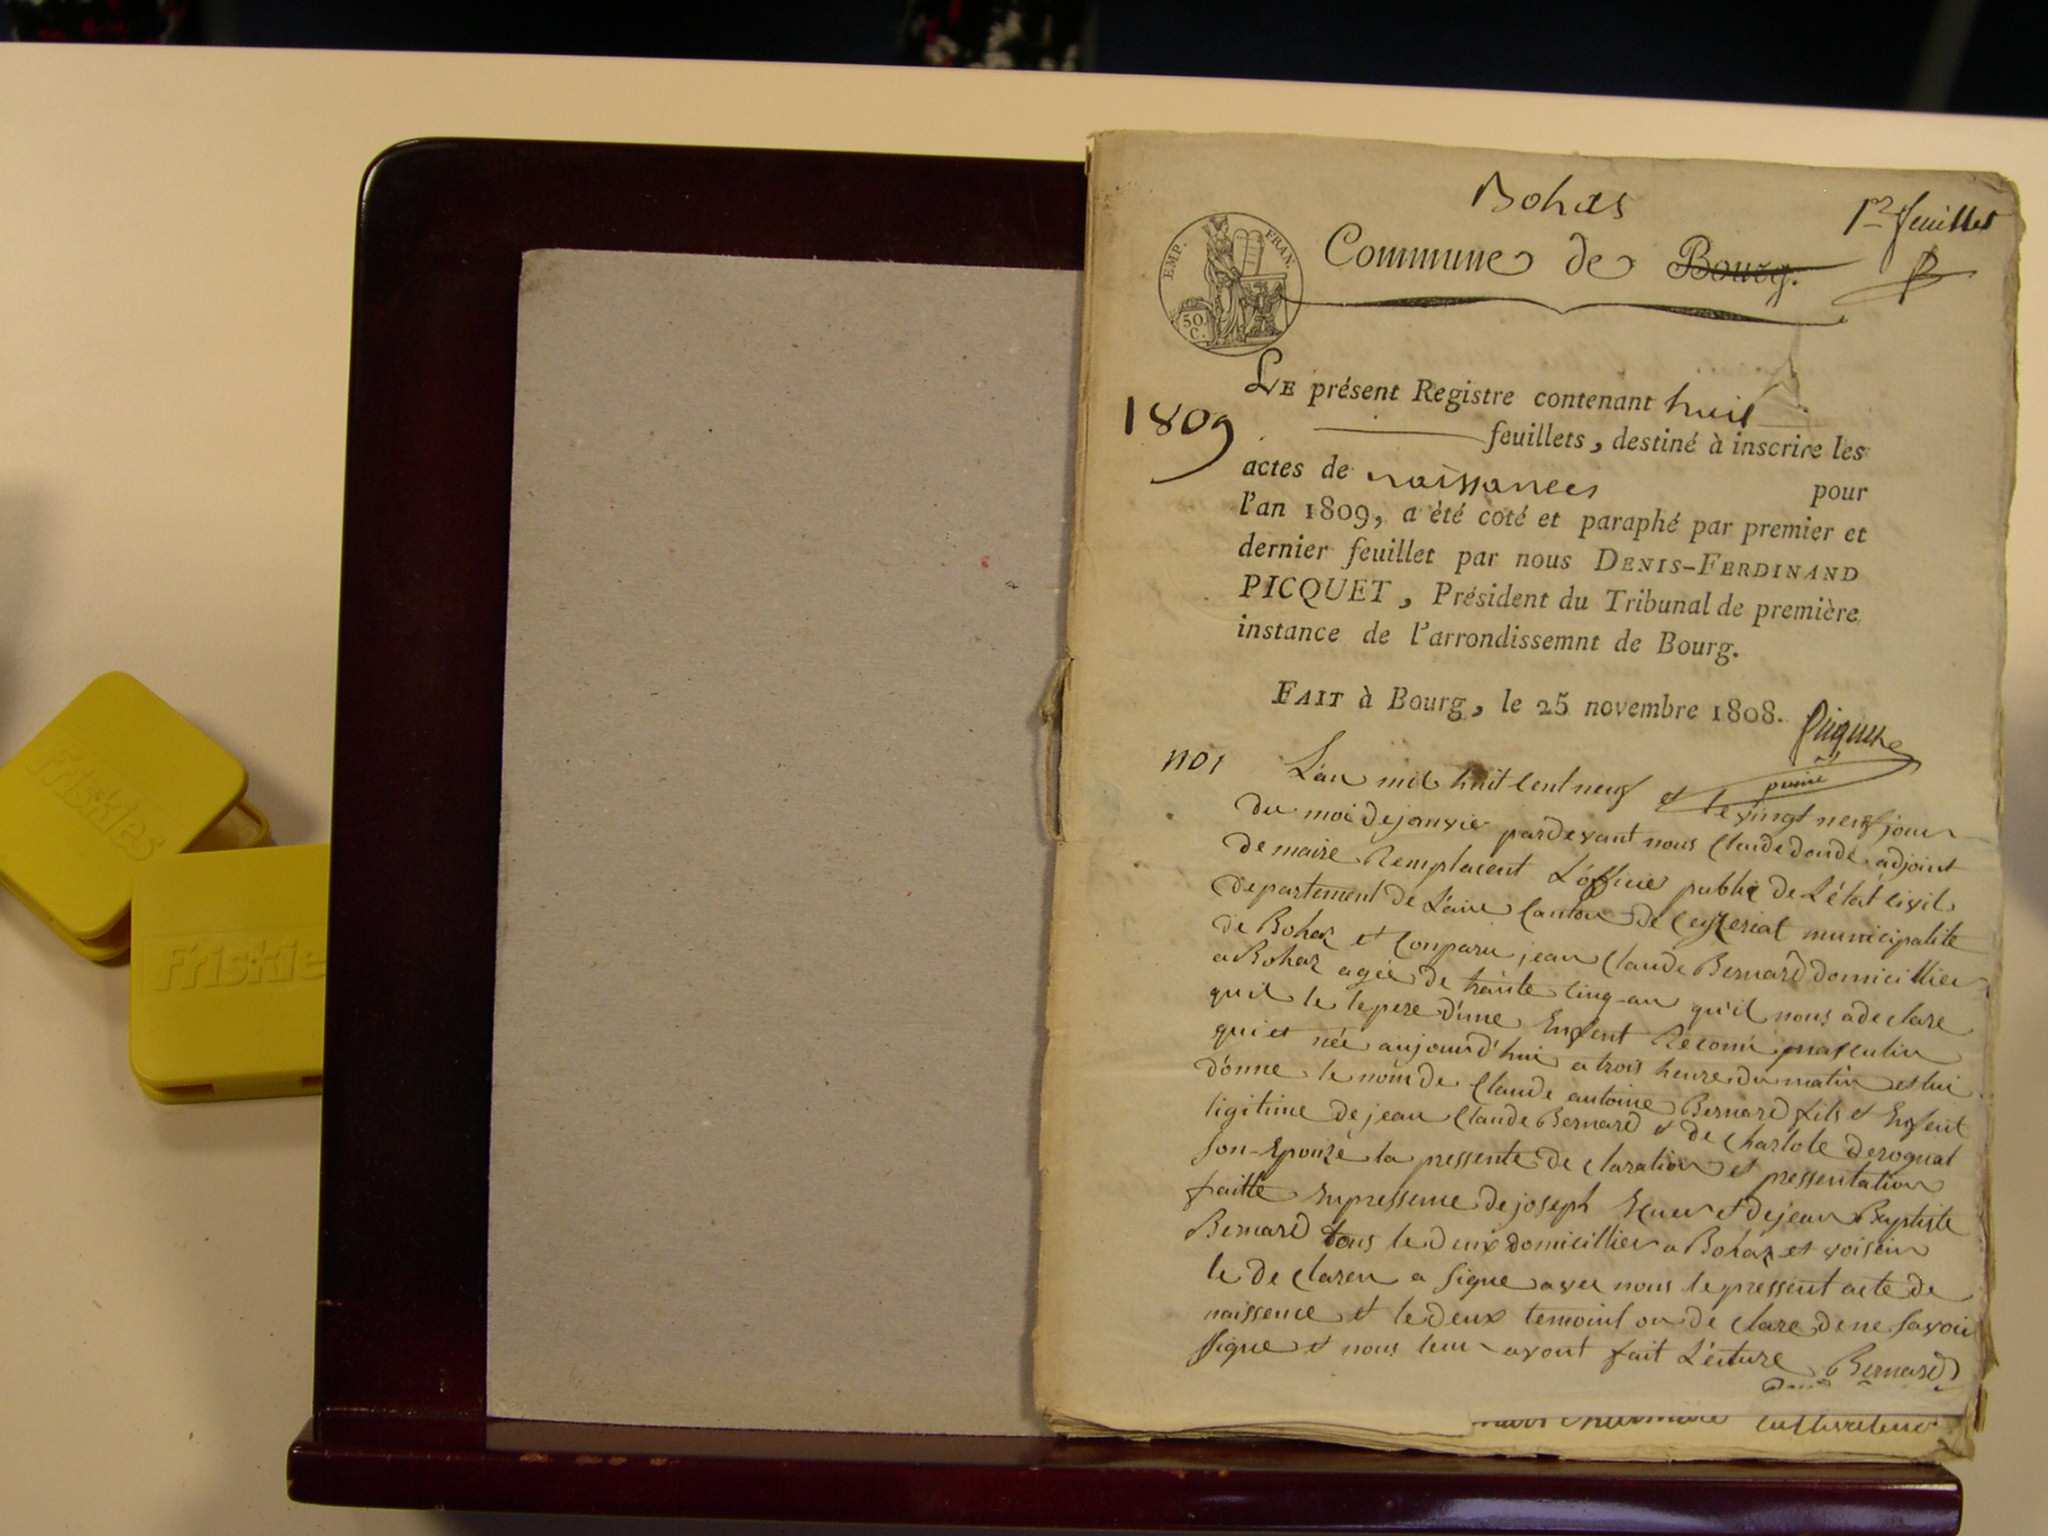 Bohas
1er feuillet
EMP. FRAN.
50 C.
Commune de Bourg.
LE présent Registre contenant huit
1809
feuillets, destiné à inscrire les
actes de naissances pour
l'an 1809, a été coté et paraphé par premier et
dernier feuillet par nous DENIS-FERDINAND
PICQUET, Président du Tribunal de première
instance de l'arrondissemnt de Bourg.
FAIT à Bourg, le 25 novembre 1808.
Picquet
no 1
L'an mil huit cent neuf et le vingt neuf jour
du moi de janvie pardevant nous Claude adjoint
de maire Remplacent L'officie public de L'état civil
departement de L'ain Canton de Ceyzeriat municipalite
de Bohaz et Conparu jean Claude Bernard domicillier
a Bohaz agée de trante cinq an qu'il nous a declare
qu'il le pere d'une Enfent Reconu masculin
qui et née aujourd'hui a trois heure du matin et lui
donne le nom de Claude antoine Bernard fils et Enfent
ligitime de jean Claude Bernard et de Charlote
Son Epouze la pressente de claration et pressentation
faitte Enpressence de joseph et de jean Baptiste
Bernard tous le deux domicillier a Bohaz et voisin
le de claren a signe avec nous le pressent acte de
naissence et le deux temoint on de clare de ne savoir
signe et nous leur avont fait L'eiture Bernard
cultivateur
Friskies
Friskie